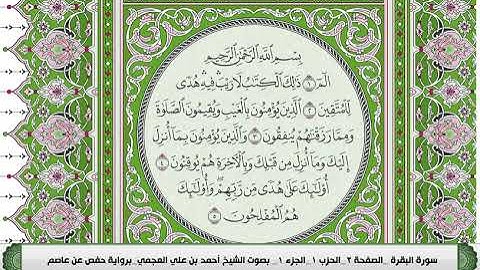 بِسْمِ اللَّهِ الرَّحْمَٰنِ الرَّحِيمِ
الٓمٓ ١ ذَٰلِكَ الْكِتَٰبُ لَا رَيْبَ ۛ فِيهِ ۛ هُدًى
لِّلْمُتَّقِينَ ٢ الَّذِينَ يُؤْمِنُونَ بِالْغَيْبِ وَيُقِيمُونَ الصَّلَوٰةَ
وَمِمَّا رَزَقْنَٰهُمْ يُنفِقُونَ ٣ وَالَّذِينَ يُؤْمِنُونَ بِمَآ أُنزِلَ
إِلَيْكَ وَمَآ أُنزِلَ مِن قَبْلِكَ وَبِالْءَاخِرَةِ هُمْ يُوقِنُونَ ٤
أُو۟لَٰٓئِكَ عَلَىٰ هُدًى مِّن رَّبِّهِمْ ۖ وَأُو۟لَٰٓئِكَ
هُمُ الْمُفْلِحُونَ ٥
سورة البقرة _الصفحة ٢_الحزب ١_الجزء ١_ بصوت الشيخ أحمد بن علي العجمي_برواية حفص عن عاصم